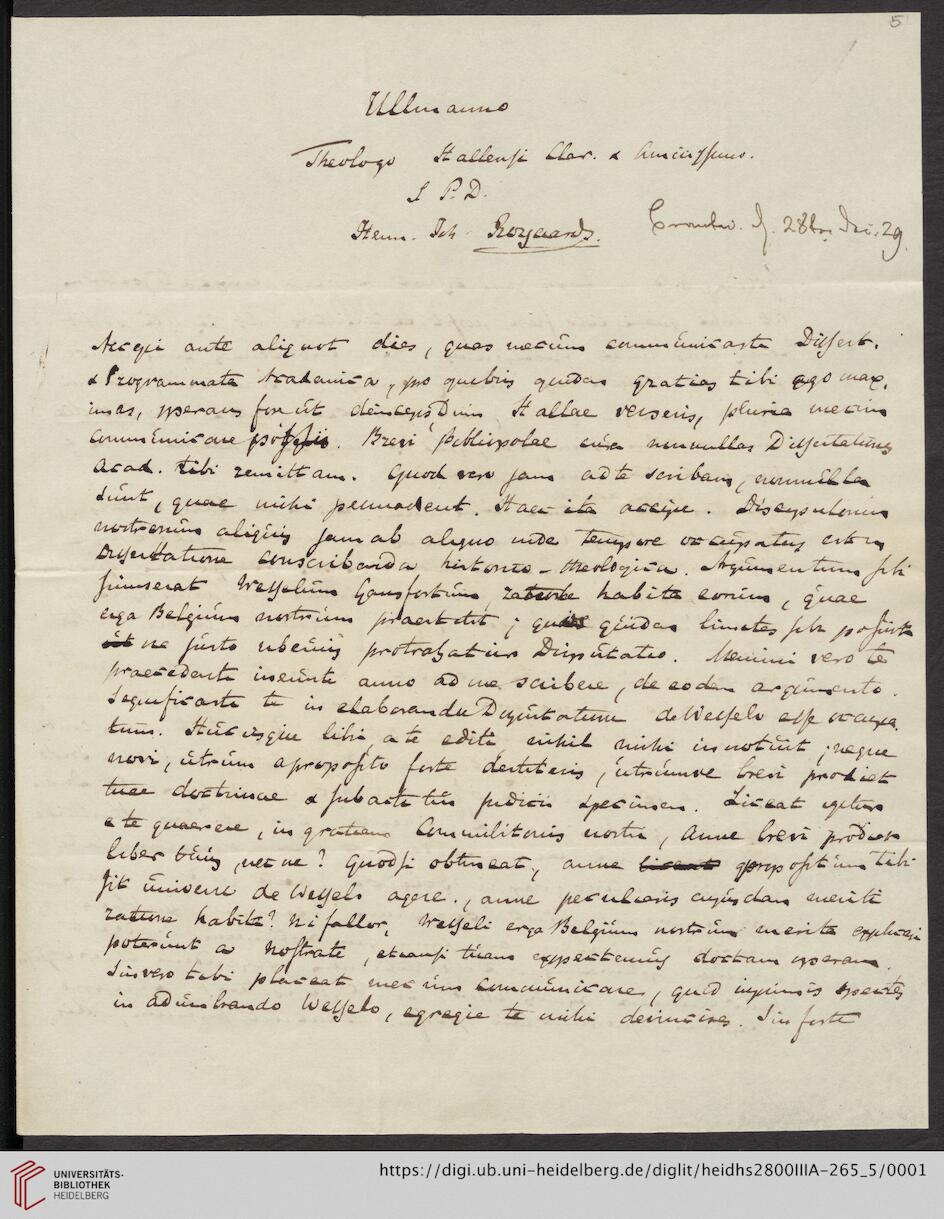 5
Ullmanno
Theologo Hallensi Clar. & Amicissimo.
S. P. D.
Henr. Joh. Royaards.
28 29
Accepi ante aliquot dies, quas mecum communicasti Dissert.
& Programmata Academica, pro quibus quidem gratias tibi ago max.
imas, sperans fore ut deinceps Dum Hallae verseris, plura mecum
communicare possis. Brevi bibliopolae cura nonnullas Dissertationes
Acad. tibi remittam. Quod vero jam ad te scribam, nonnulla
sunt, quae mihi permovent. Haec ita accipe. Discipulorum
nostrorum aliquis jam ab aliquo inde tempore occupatus est in
Dissertatione conscribenda historico-theologica. Argumentum sibi
sumserat Wesselum Gansfortium, ratione habita eorum, quae
erga Belgium nostrum praestitit; quidem limites sibi posuit
ut ne justo uberius protrahatur Disputatio. Memini vero te
praecedente ineunte anno ad me scribere, de eodem argumento.
Significasti te in elaboranda Disputatione de Wesselo esse occupa
tum. Hucusque libri a te editi nihil mihi innotuit; neque
novi, utrum a proposito forte destiteris, utrumve brevi prodiet
tuae doctrinae & subacti tui judicii specimen. Liceat igitur
a te quaerere, in gratiam Commilitonis nostri, anne brevi prodeat
liber tuus, nec ne? Quodsi obtineat, anne propositum tibi
sit universe de Wesselo agere, anne peculiaris cujusdam meriti
ratione habita? Ni fallor, Wesseli erga Belgium nostrum merita explicari
poterunt a Nostrate, etiamsi tuam expectemus doctam operam.
Sin vero tibi placeat mecum communicare, quid inprimis spectes
in adumbrando Wesselo, egregie te mihi devincies. Sin forte
UNIVERSITÄTS-
BIBLIOTHEK
HEIDELBERG
https://digi.ub.uni-heidelberg.de/diglit/heidhs2800IIIA-265_5/0001